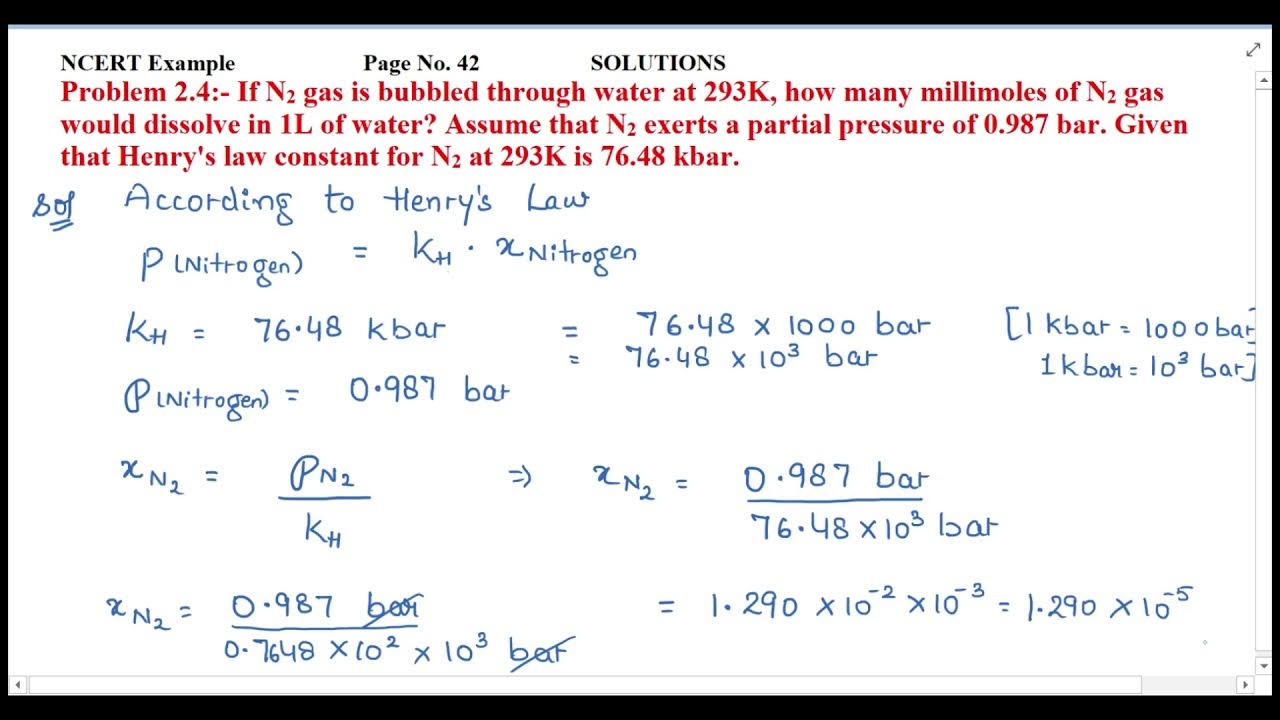 NCERT Example Page No. 42 SOLUTIONS
Problem 2.4:- If N₂ gas is bubbled through water at 293K, how many millimoles of N₂ gas
would dissolve in 1L of water? Assume that N₂ exerts a partial pressure of 0.987 bar. Given
that Henry's law constant for N₂ at 293K is 76.48 kbar.
Sol According to Henry's Law
P(Nitrogen) = KH · xNitrogen
KH = 76.48 kbar = 76.48 × 1000 bar [1 kbar = 1000 bar
= 76.48 × 10³ bar 1 kbar = 10³ bar]
P(Nitrogen) = 0.987 bar
xN₂ = PN₂ / KH ⇒ xN₂ = 0.987 bar / 76.48 × 10³ bar
xN₂ = 0.987 bar / 0.7648 × 10² × 10³ bar = 1.290 × 10⁻² × 10⁻³ = 1.290 × 10⁻⁵